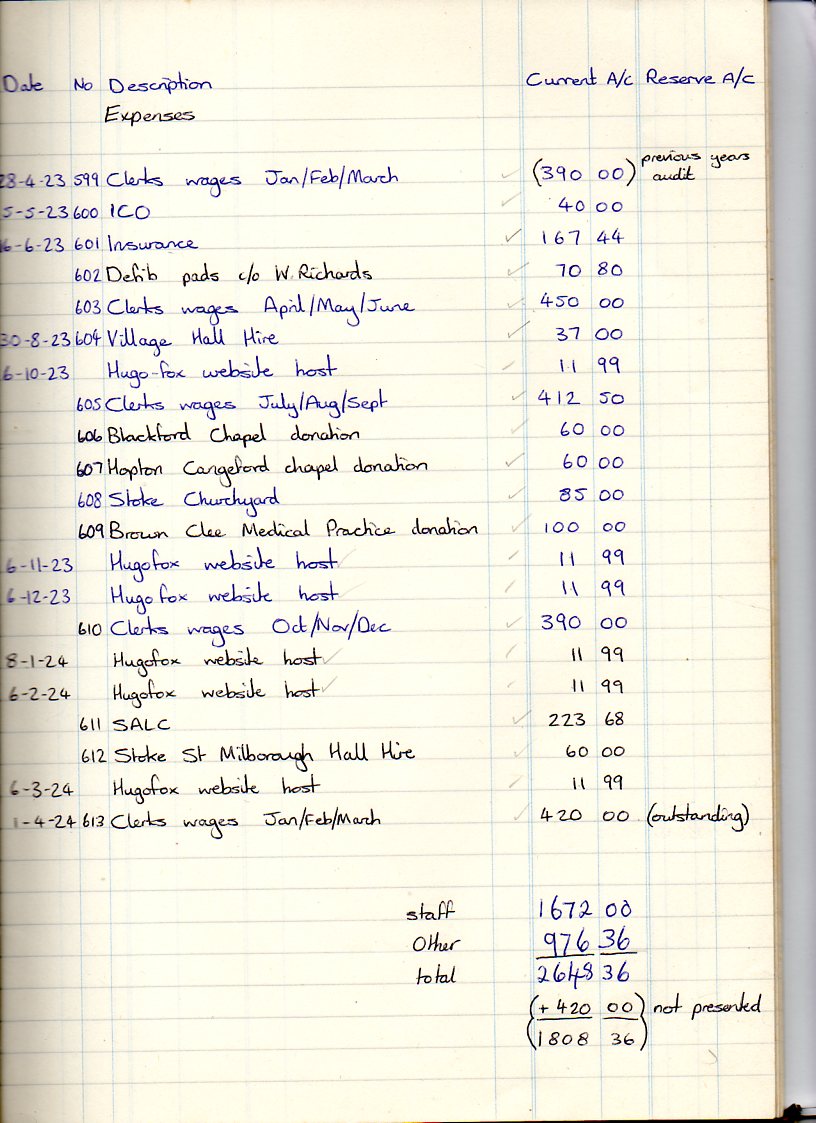 Date No Description Current A/c Reserve A/c
Expenses
28-4-23 599 Clerks wages Jan/Feb/March (390 00) previous years audit
5-5-23 600 ICO 40 00
16-6-23 601 Insurance 167 44
602 Defib pads c/o W. Richards 70 80
603 Clerks wages April/May/June 450 00
30-8-23 604 Village Hall Hire 37 00
6-10-23 Hugo-fox website host 11 99
605 Clerks wages July/Aug/Sept 412 50
606 Blackford Chapel donation 60 00
607 Hopton Cangeford chapel donation 60 00
608 Stoke Churchyard 85 00
609 Brown Clee Medical Practice donation 100 00
6-11-23 Hugofox website host 11 99
6-12-23 Hugofox website host 11 99
610 Clerks wages Oct/Nov/Dec 390 00
8-1-24 Hugofox website host 11 99
6-2-24 Hugofox website host 11 99
611 SALC 223 68
612 Stoke St Milborough Hall Hire 60 00
6-3-24 Hugofox website host 11 99
1-4-24 613 Clerks wages Jan/Feb/March 420 00 (outstanding)
staff 1672 00
Other 976 36
total 2648 36
(+ 420 00) not presented
(1808 36)